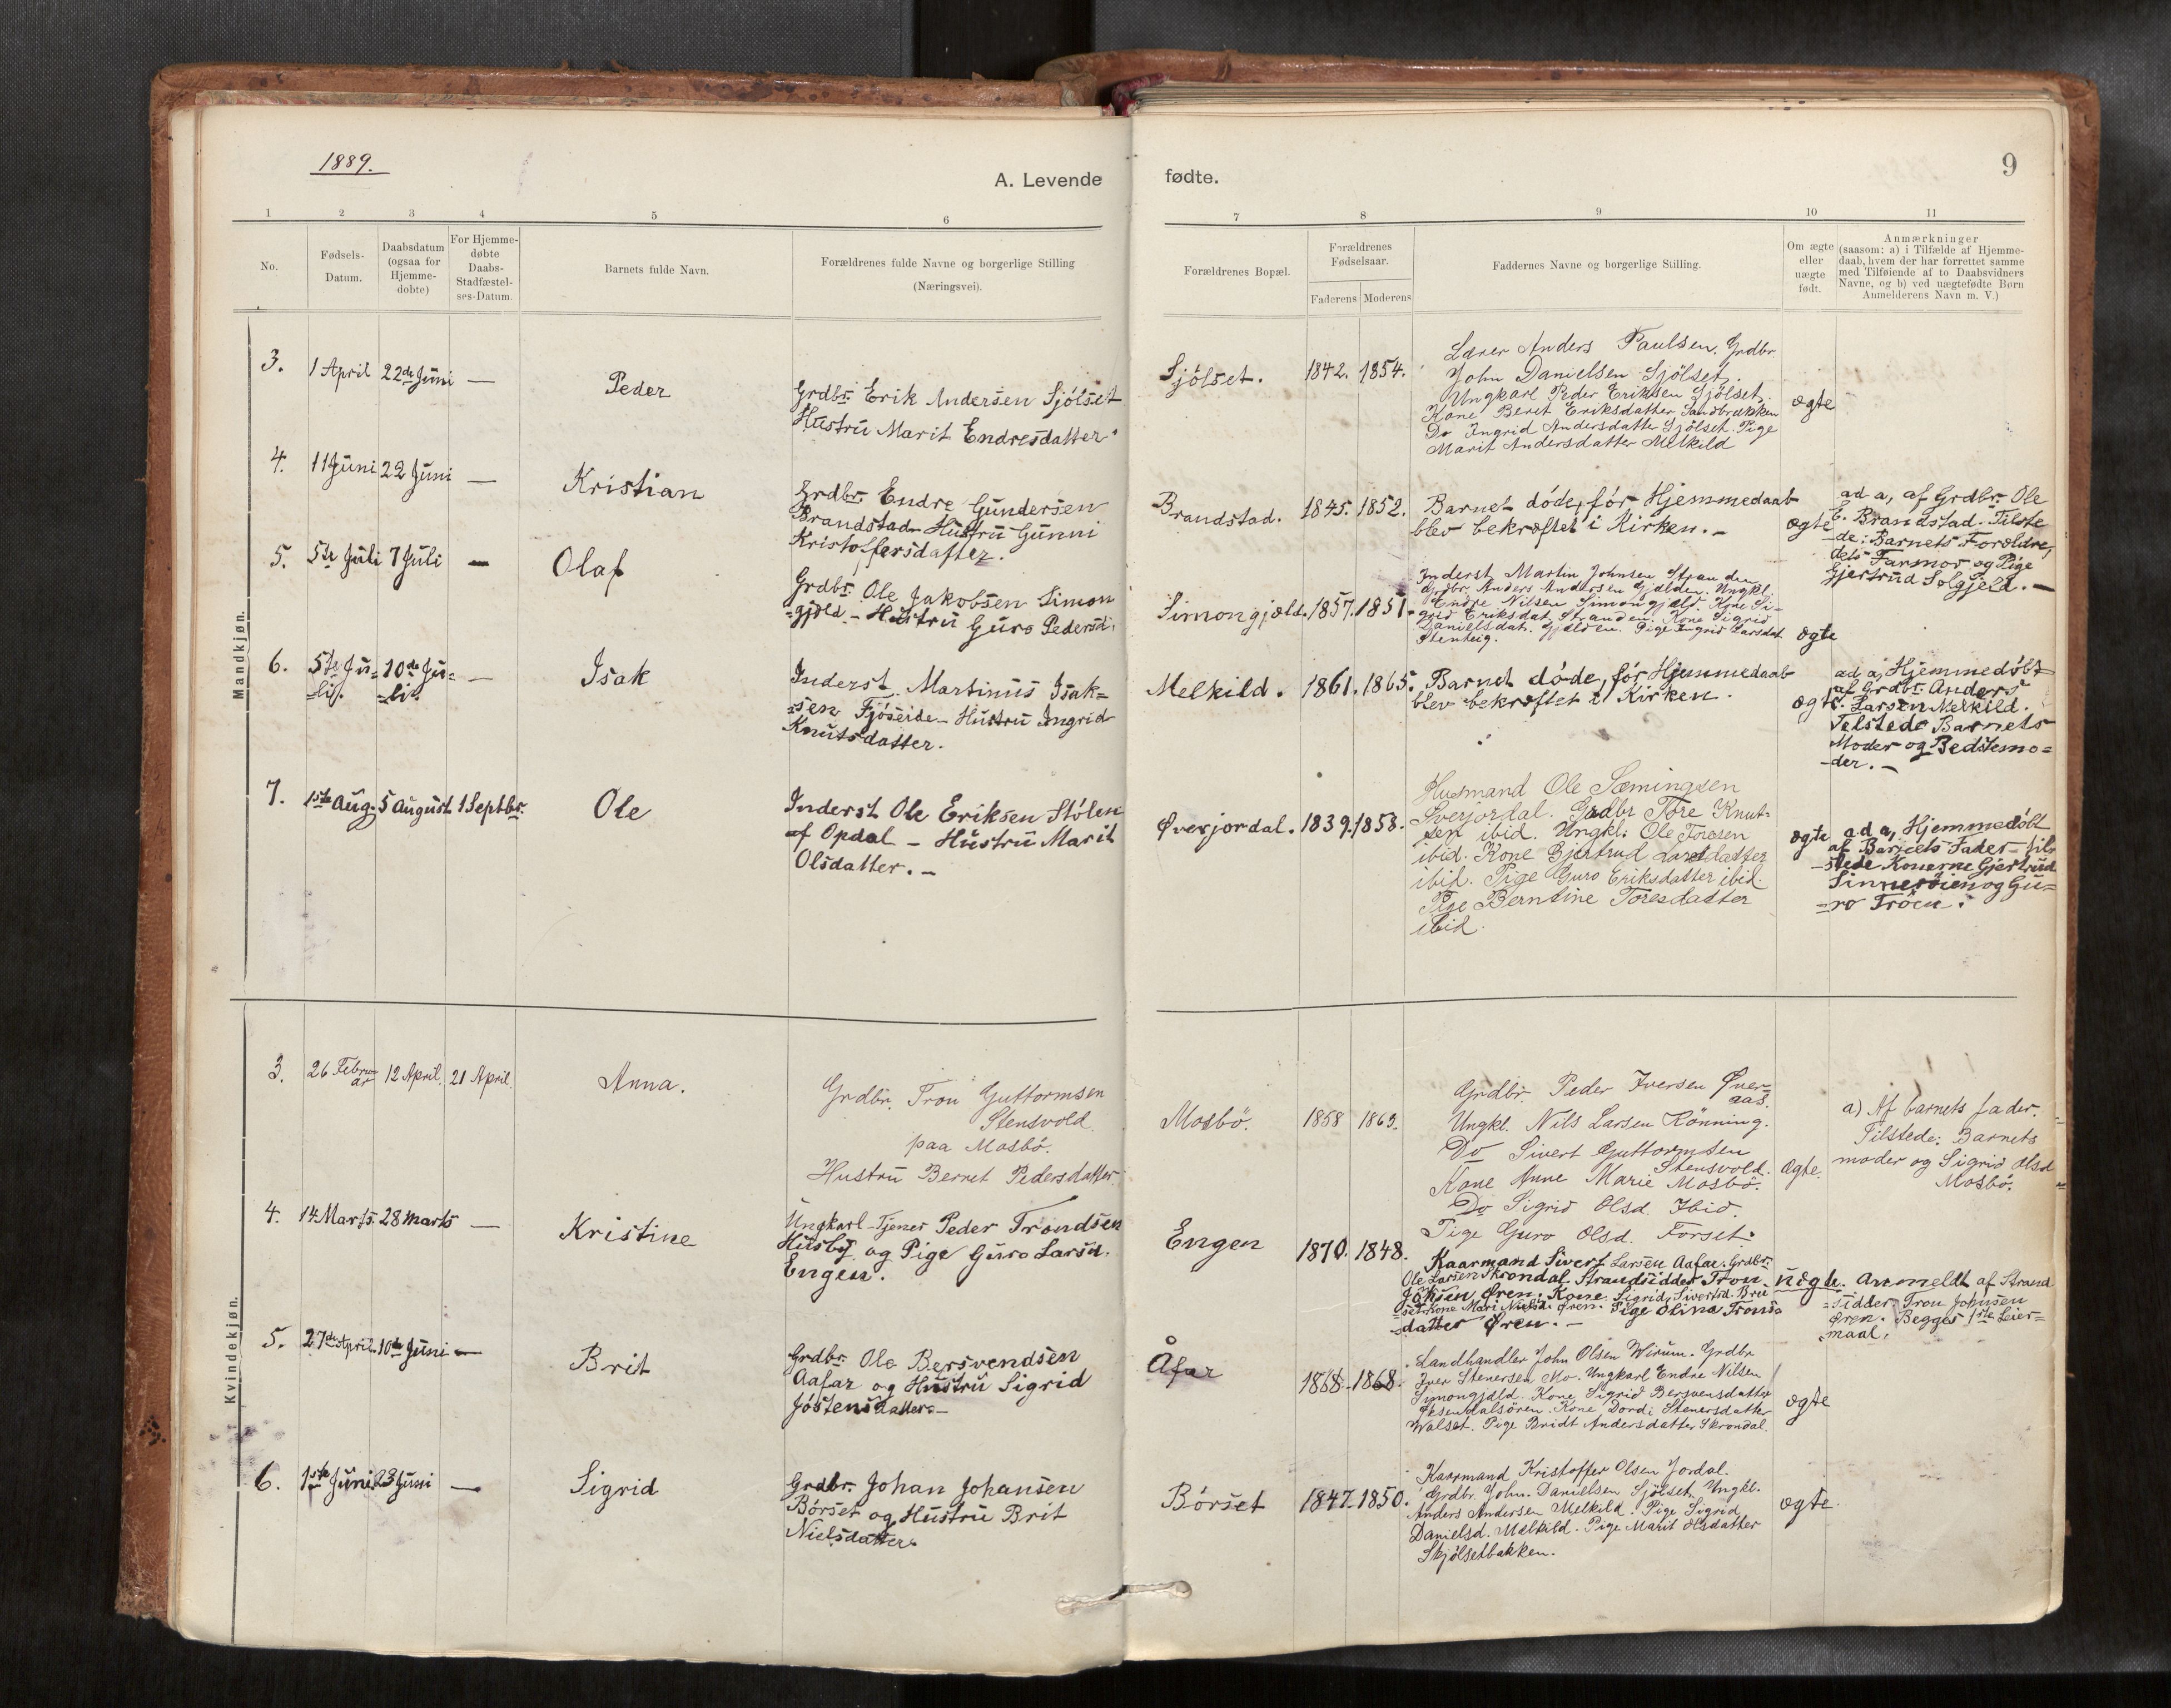 1889.
A. Levende fødte.
9
1 2 3 4 5 6 7 8 9 10 11
No.
Fødsels-
Datum.
Daabsdatum
(ogsaa for
Hjemme-
døbte)
For Hjemme-
døbte
Daabs-
Stadfæstel-
ses-Datum.
Barnets fulde Navn.
Forældrenes fulde Navne og borgerlige Stilling
(Næringsvei).
Forældrenes Bopæl.
Forældrenes
Fødselsaar.
Faderens Moderens
Faddernes Navne og borgerlige Stilling.
Om ægte
eller
uægte
født.
Anmærkninger
(saasom: a) i Tilfælde af Hjemme-
daab, hvem der har forrettet samme
med Tilføiende af to Daabsvidners
Navne, og b) ved uægtefødte Børn
Anmelderens Navn m. V.)
Mandkjøn.
3. 1 April 22de Juni — Peder
Grdbr. Erik Andersen Sjölset
Hustru Marit Endresdatter.
Sjölset. 1842. 1854.
Lærer Anders Paulsen. Grdbr
John Danielsen Sjölset.
Ungkarl Peder Eriksen Sjölset.
Kone Berit Eriksdatter Sandbrækken
Do Ingrid Andersdatter Sjölset. Pige
Marit Andersdatter Melkild
ægte
4. 11 Juni 22 Juni — Kristian
Grdbr. Endre Gundersen
Brandstad – Hustru Gunni
Kristoffersdatter.
Brandstad. 1845. 1852.
Barnet döde, för Hjemmedaab
blev bekræftet i Kirken. –
ægte
ad a, af Grdbr. Ole
E. Brandstad. Tilste
-de: Barnets Forældre,
dets Farmor og Pige
Gjertrud Solgjeld. –
5. 5te Juli 7 Juli — Olaf
Grdbr. Ole Jakobsen Simon
=gjeld. – Hustru Guro Pedersd.
Simongjæld. 1857. 1851.
Inderst Martin Johnsen Stranden
Grdbr. Anders Andersen Gjælden. Ungkl.
Endre Nilsen Simongjæld. Kone Si-
grid Eriksdat. Stranden. Kone Sigrid
Danielsdat. Gjælden. Pige Ingrid Larsdat
Stenteig.
ægte
6. 5te Ju=
li. 10de Ju=
li. — Isak
Inderst. Martinus Isak=
=sen Fjöseide – Hustru Ingrid
Knutsdatter.
Melkild. 1861. 1865.
Barnet döde, för Hjemmedaab
blev bekræftet i Kirken.
ægte.
ad a, Hjemmedöbt
af Grdbr. Anders
Larsen Melkild.
Telstede Barnets
Moder og Bedstemo=
-der. –
7. 1ste Aug. 5 August 1 Septbr. Ole
Inderst Ole Eriksen Stölen
af Opdal – Hustru Marit
Olsdatter. –
Øverjordal. 1839. 1858.
Husmand Ole Sæmingsen
Överjordal. Grdbr Tore Knut-
sen ibid. Ungkl. Ole Toresen
ibid. Kone Gjertrud Larsdatter
ibid. Pige Guro Eriksdatter ibid.
Pige Berntine Toresdatter
ibid.
ægte
ad a, Hjemmedöbt
af Barnets Fader – til
-stede Konerne Gjertrud
Sinneröien og Gu=
=ro Tröen.
Kvindekjøn.
3. 26 Febru-
ar 12 April. 21 April. Anna.
Grdbr. Tron Guttormsen
Stensvold.
paa Mosbö.
Hustru Berret Pedersdatter.
Mosbö. 1858 1863.
Grdbr. Peder Iversen Øver=
aas.
Ungkl. Nils Larsen Rönning.
Do Sivert Guttormsen
Stensvold.
Kone Anne Marie Mosbö.
Do Sigrid Olsd. Ibid.
Pige Guro Olsd. Forset.
Ægte.
a) Af barnets fader.
Tilstede: Barnets
moder og Sigrid Olsd
Mosbö.
4. 14 Marts. 28 Marts — Kristine
Ungkarl-Tjener Peder Trondsen
Husby og Pige Guro Larsd.
Engen.
Engen 1870. 1848.
Kaarmand Sivert Larsen Aafar. Grdbr.
Ole Larsen Skrondal. Strandsidder Tron
Johsen Øren. Kone Sigrid Sivertsd. Bru
=set. Kone Mari Nielsd. Øren. Pige Olina Tronds
=datter Øren. –
uægte.
Anmeldt af Strand
=sidder Tron Johnsen
Øren. Begges 1ste Leier=
=maal.
5. 27de April. 10de Juni — Brit
Grdbr. Ole Bersvendsen
Aafar og Hustru Sigrid
Jöstensdatter. –
Åfar 1868. 1868.
Landhandler John Olsen Wirum. Grdbr
Iver Stenersen Mo. Ungkarl Endre Nilsen
Simongjæld. Kone Sigrid Bersvensdatter
Öksendalsören. Kone Dordi Stenersdatter
Walset. Pige Bridt Andersdatter Skrondal.
ægte
6. 1ste Juni 23 Juni — Sigrid
Grdbr. Johan Johansen
Börset og Hustru Brit
Nielsdatter.
Börset 1847. 1850.
Kaarmand Kristoffer Olsen Jordal.
Grdbr. John. Danielsen Sjölset. Ungkl.
Anders Andersen Melkild. Pige Sigrid
Danielsd. Melkild. Pige Marit Olsdatter
Skjölsetbakken.
ægte